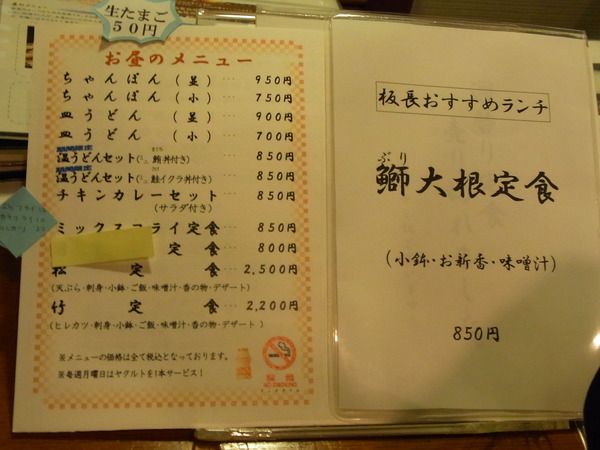 生たまご
50円
お昼のメニュー
ちゃんぽん(並) … 950円
ちゃんぽん(小) … 750円
皿うどん(並) … 900円
皿うどん(小) … 700円
期間限定
温うどんセット(ミニ鮪丼付き) … 850円
期間限定
温うどんセット(ミニ鮭イクラ丼付き) … 850円
チキンカレーセット … 850円
(サラダ付き)
ミックスフライ定食 … 850円
定食 … 800円
松定食 … 2,500円
(天ぷら・刺身・小鉢・ご飯・味噌汁・香の物・デザート)
竹定食 … 2,200円
(ヒレカツ・刺身・小鉢・ご飯・味噌汁・香の物・デザート)
※メニューの価格は全て税込となっております。
※毎週月曜日はヤクルトを1本サービス!
禁煙
NO SMOKING
板長おすすめランチ
ぶり
鰤大根定食
(小鉢・お新香・味噌汁)
850円